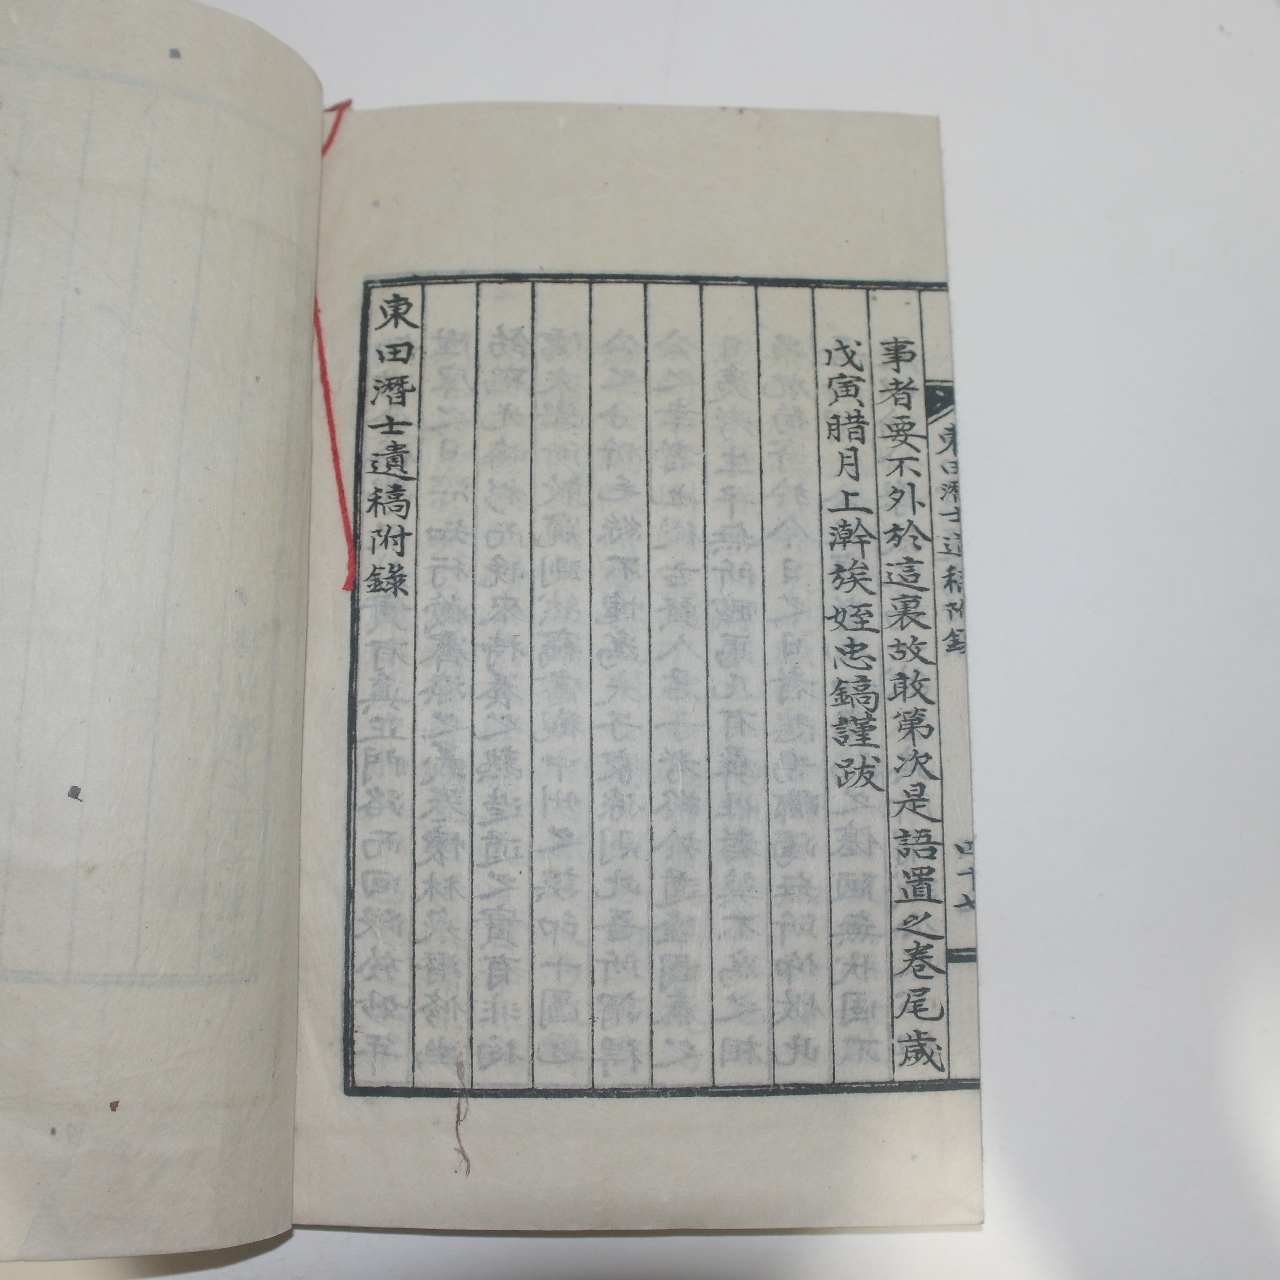 東田潛士遺稿附錄
四十七
事者要不外於這裏故敢第次是語置之卷尾歲
戊寅腊月上澣族姪忠鎬謹跋
東田潛士遺稿附錄